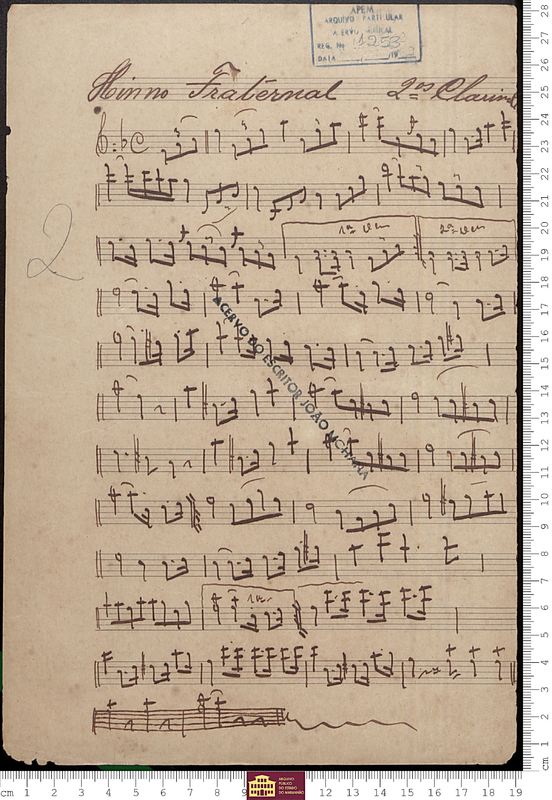 APEM
ARQUIVO PARTICULAR
ACERVO MUSICAL
REG. Nº 1253
DATA / /19
Hinno Fraternal 2os Clarin
2
1a vez 2a vez
ACERVO DO ESCRITOR JOÃO MOHANA
1a
ARQUIVO
PÚBLICO
DO ESTADO
DO MARANHÃO
cm 1 2 3 4 5 6 7 8 9 12 13 14 15 16 17 18 19
28
27
26
25
24
23
22
21
20
19
18
17
16
15
14
13
12
11
10
9
8
7
6
5
4
3
2
1
cm